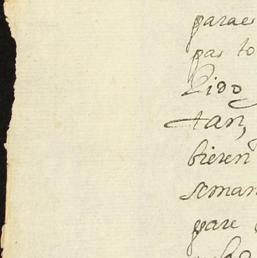 parae
pas to
Pido
tan,
bieren
seman
pare